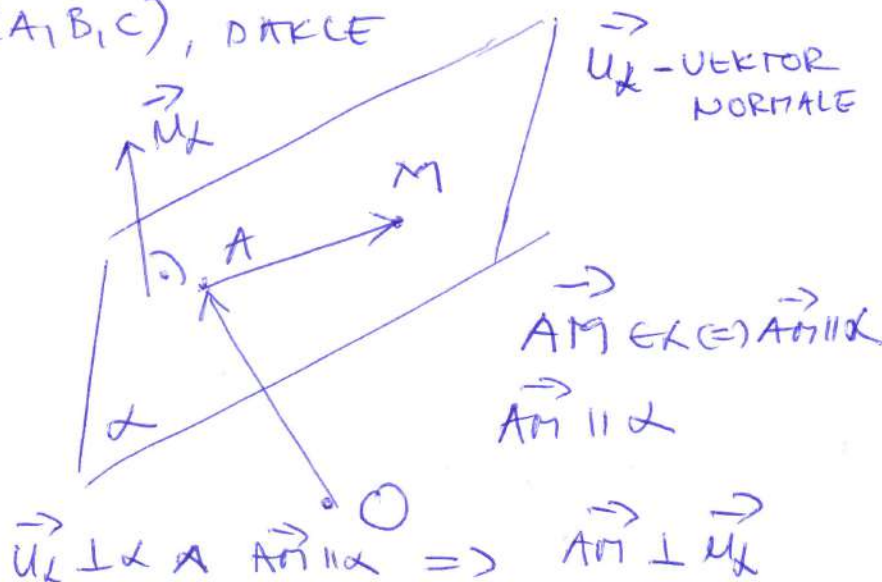 A, B, C), DAKLE
$\vec{n}_\alpha$ - VEKTOR
NORMALE
$\vec{n}_\alpha$
M
A
$\overrightarrow{AM} \in \alpha \Leftrightarrow \overrightarrow{AM} \parallel \alpha$
$\overrightarrow{AM} \parallel \alpha$
α
O
$\vec{n}_\alpha \perp \alpha \wedge \overrightarrow{AM} \parallel \alpha \Rightarrow \overrightarrow{AM} \perp \vec{n}_\alpha$